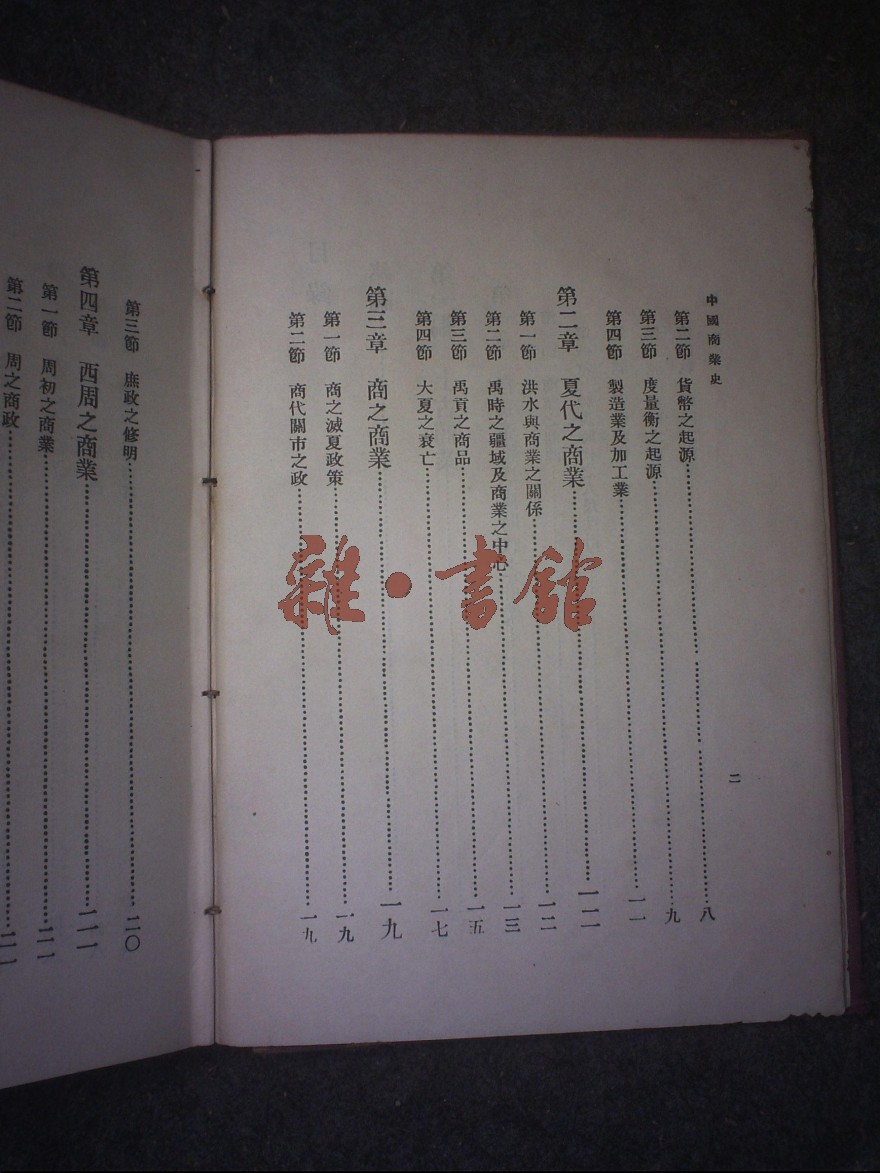 中國商業史
二
第二節 貨幣之起源……八
第三節 度量衡之起源……九
第四節 製造業及加工業……一一
第二章 夏代之商業……一二
第一節 洪水與商業之關係……一二
第二節 禹時之疆域及商業之中心……一三
第三節 禹貢之商品……一五
第四節 大夏之衰亡……一七
第三章 商之商業……一九
第一節 商之滅夏政策……一九
第二節 商代關市之政……一九
第三節 庶政之修明……二〇
第四章 西周之商業……二一
第一節 周初之商業……二一
第二節 周之商政……二一
雜·書館